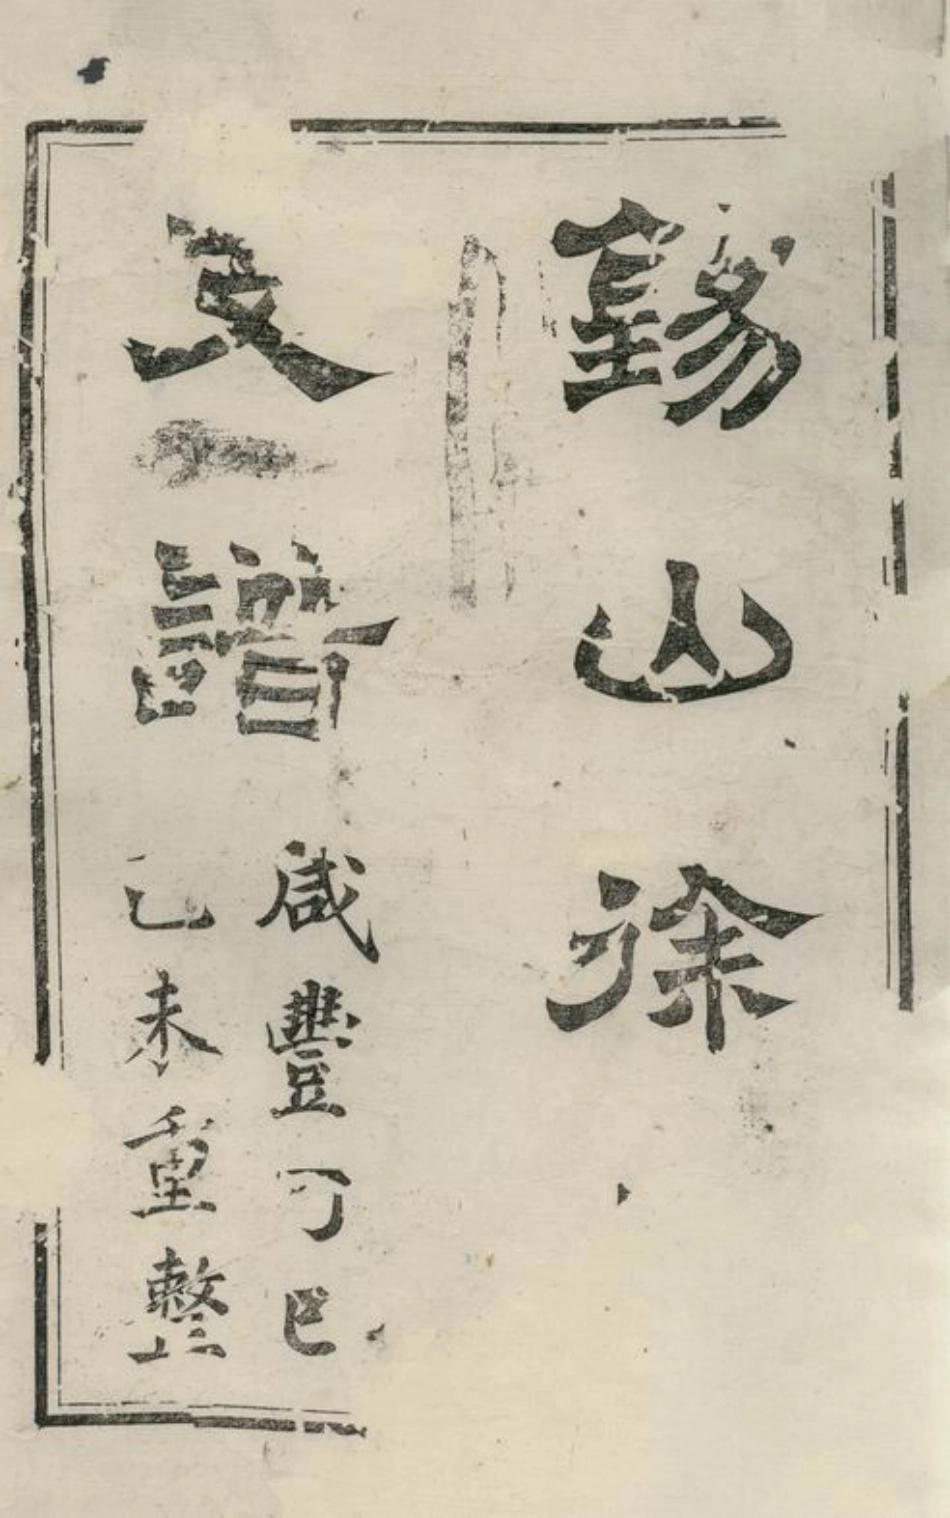 錫山徐
支譜
咸豐丁巳
己未重整